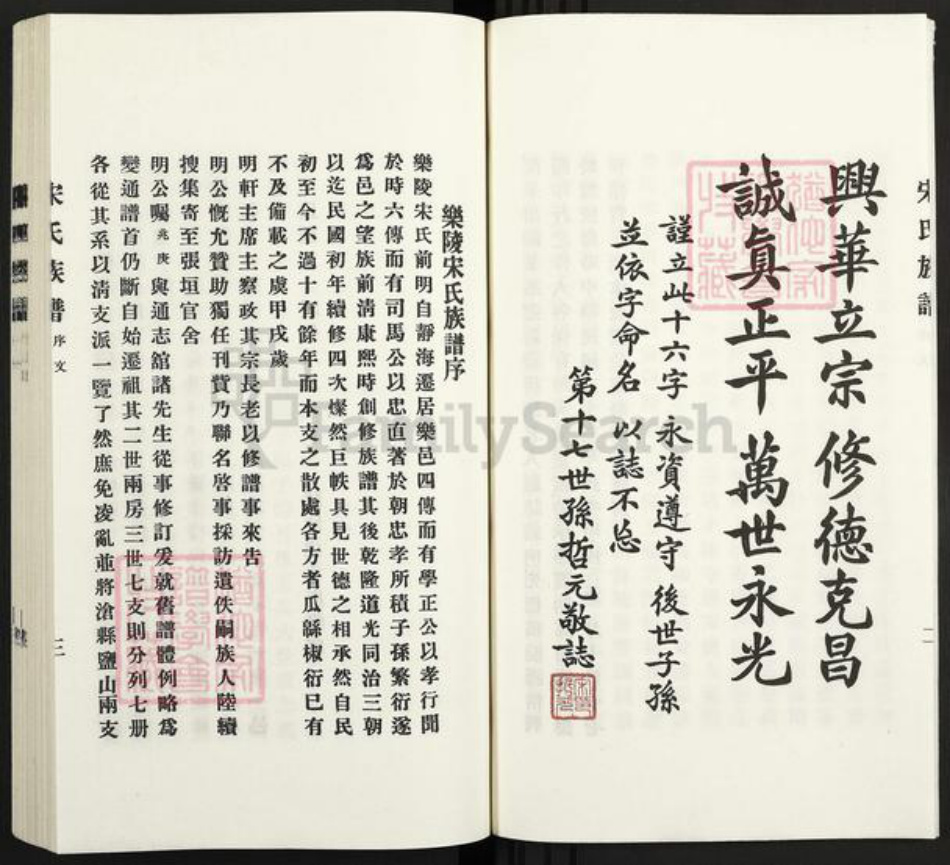 宋氏族譜
二
興華立宗 修德克昌
誠眞正平 萬世永光
謹立此十六字 永資遵守 後世子孫
並依字命名 以誌不忘
第十七世孫哲元敬誌
樂陵宋氏族譜序
樂陵宋氏前明自靜海遷居樂邑四傳而有學正公以孝行聞
於時六傳而有司馬公以忠直著於朝忠孝所積子孫繁衍遂
爲邑之望族前淸康熙時創修族譜其後乾隆道光同治三朝
以迄民國初年續修四次燦然巨帙具見世德之相承然自民
初至今不過十有餘年而本支之散處各方者瓜緜椒衍已有
不及備載之虞甲戌歲
明軒主席主察政其宗長老以修譜事來告
明公慨允贊助獨任刊貲乃聯名啓事採訪遺佚嗣族人陸續
搜集寄至張垣官舍
明公囑兆庚與通志舘諸先生從事修訂爰就舊譜體例略爲
變通譜首仍斷自始遷祖其二世兩房三世七支則分列七册
各從其系以淸支派一覽了然庶免凌亂並將滄縣鹽山兩支
宋氏族譜
序文
三
FamilySearch